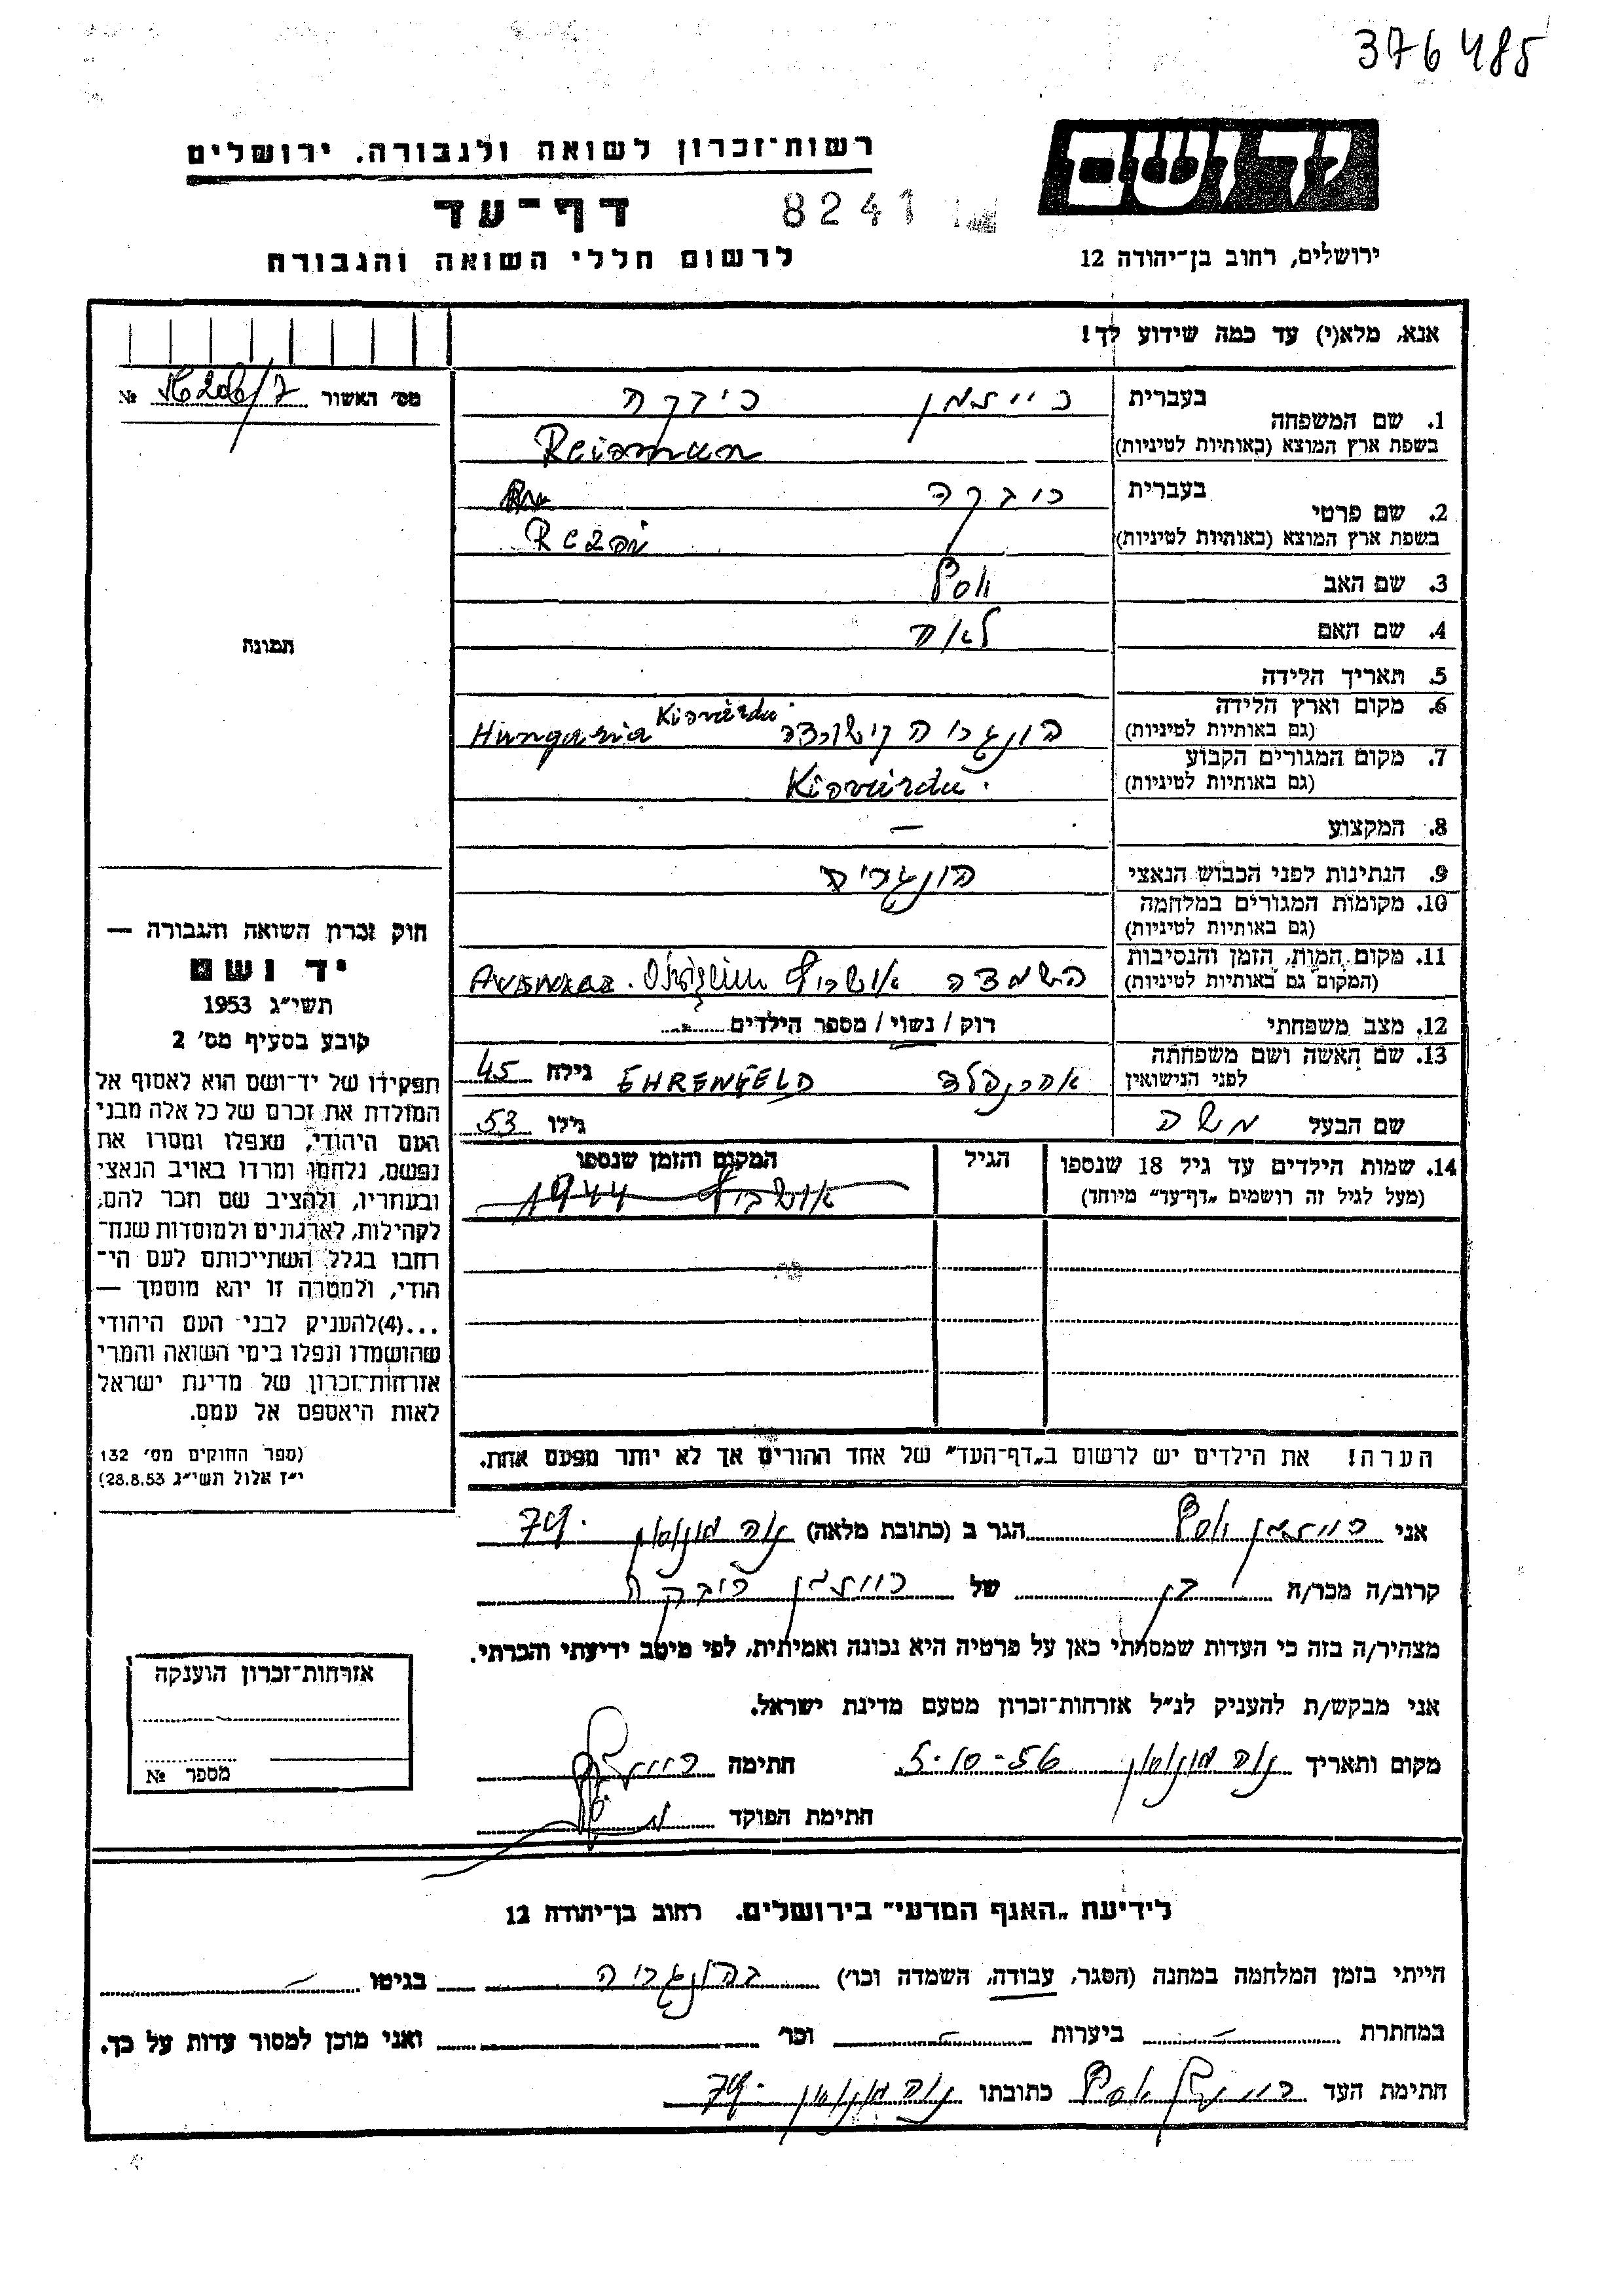 376485
רשות־זכרון לשואה ולגבורה. ירושלים
יד ושם
דף־עד
8241
לרשום חללי השואה והגבורה
ירושלים, רחוב בן־יהודה 12
אנא, מלא(י) עד כמה שידוע לך!
מס׳ האשור №
1. שם המשפחה
בעברית רייזמן רבקה
בשפת ארץ המוצא (באותיות לטיניות) Reisman
2. שם פרטי
בעברית רבקה
בשפת ארץ המוצא (באותיות לטיניות) Rezsi
3. שם האב יוסף
4. שם האם לאה
5. תאריך הלידה
6. מקום וארץ הלידה
(גם באותיות לטיניות) הונגריה קישורדה Kisvárda Hungaria
7. מקום המגורים הקבוע
(גם באותיות לטיניות) Kisvárda
8. המקצוע —
9. הנתינות לפני הכבוש הנאצי הונגרית
10. מקומות המגורים במלחמה
(גם באותיות לטיניות)
11. מקום המות, הזמן והנסיבות
(המקום גם באותיות לטיניות) השמדה אושביץ
12. מצב משפחתי רוק / נשוי / מספר הילדים
13. שם האשה ושם משפחתה
לפני הנישואין אהרנפלד EHRENFELD גילה 45
שם הבעל משה גילו 53
14. שמות הילדים עד גיל 18 שנספו
(מעל לגיל זה רושמים „דף־עד״ מיוחד)
הגיל
המקום והזמן שנספו
אושביץ 1944
הערה! את הילדים יש לרשום ב„דף־העד״ של אחד ההורים אך לא יותר מפעם אחת.
תמונה
חוק זכרון השואה והגבורה —
יד ושם
תשי״ג 1953
קובע בסעיף מס׳ 2
תפקידו של יד־ושם הוא לאסוף אל
המולדת את זכרם של כל אלה מבני
העם היהודי, שנפלו ומסרו את
נפשם, נלחמו ומרדו באויב הנאצי
ובעוזריו, ולהציב שם וזכר להם,
לקהילות, לארגונים ולמוסדות שנח־
רחבו בגלל השתייכותם לעם הי־
הודי, ולמטרה זו יהא מוסמך —
...(4)להעניק לבני העם היהודי
שהושמדו ונפלו בימי השואה והמרי
אזרחות־זכרון של מדינת ישראל
לאות היאספם אל עמם.
(ספר החוקים מס׳ 132
י״ז אלול תשי״ג 28.8.53)
אני רייזמן יוסף הגר ב (כתובת מלאה) נוה מונוסון 79
קרוב/ה מכר/ה בן של רייזמן רבקה
מצהיר/ה בזה כי העדות שמסרתי כאן על פרטיה היא נכונה ואמיתית, לפי מיטב ידיעתי והכרתי.
אני מבקש/ת להעניק לנ״ל אזרחות־זכרון מטעם מדינת ישראל.
מקום ותאריך נוה מונוסון 5-10-56 חתימה
חתימת הפוקד
אזרחות־זכרון הוענקה
מספר №
לידיעת „האגף המדעי״ בירושלים. רחוב בן־יהודה 12
הייתי בזמן המלחמה במחנה (הסגר, עבודה, השמדה וכו׳) בהונגריה בגיטו —
במחתרת — ביערות — וכו׳ ואני מוכן למסור עדות על כך.
חתימת העד רייזמן יוסף כתובתו נוה מונוסון 79